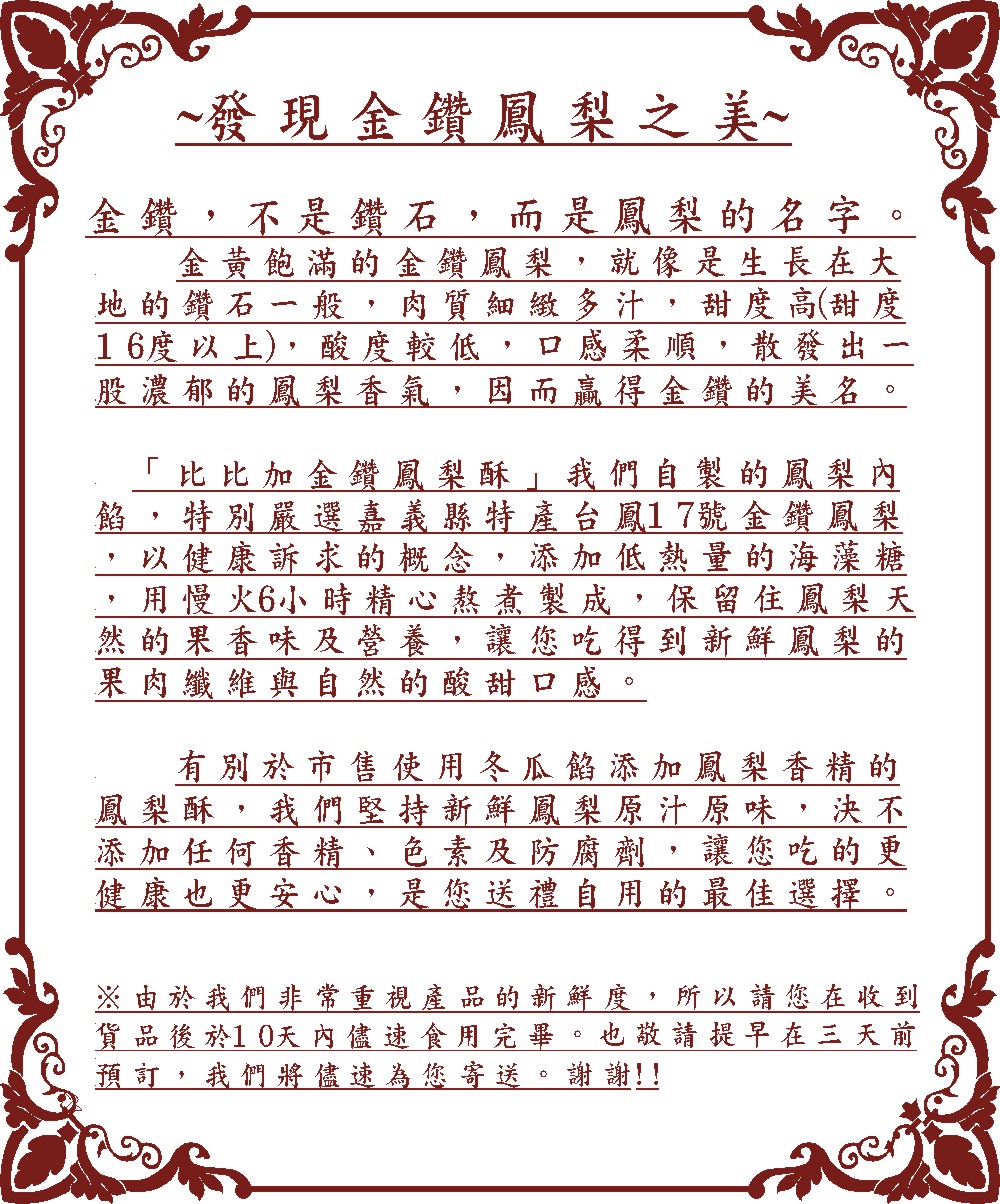 ~發現金鑽鳳梨之美~
金鑽，不是鑽石，而是鳳梨的名字。
金黃飽滿的金鑽鳳梨，就像是生長在大
地的鑽石一般，肉質細緻多汁，甜度高(甜度
16度以上)，酸度較低，口感柔順，散發出一
股濃郁的鳳梨香氣，因而贏得金鑽的美名。
「比比加金鑽鳳梨酥」我們自製的鳳梨內
餡，特別嚴選嘉義縣特產台鳳17號金鑽鳳梨
，以健康訴求的概念，添加低熱量的海藻糖
，用慢火6小時精心熬煮製成，保留住鳳梨天
然的果香味及營養，讓您吃得到新鮮鳳梨的
果肉纖維與自然的酸甜口感。
有別於市售使用冬瓜餡添加鳳梨香精的
鳳梨酥，我們堅持新鮮鳳梨原汁原味，決不
添加任何香精、色素及防腐劑，讓您吃的更
健康也更安心，是您送禮自用的最佳選擇。
※由於我們非常重視產品的新鮮度，所以請您在收到
貨品後於10天內儘速食用完畢。也敬請提早在三天前
預訂，我們將儘速為您寄送。謝謝!!